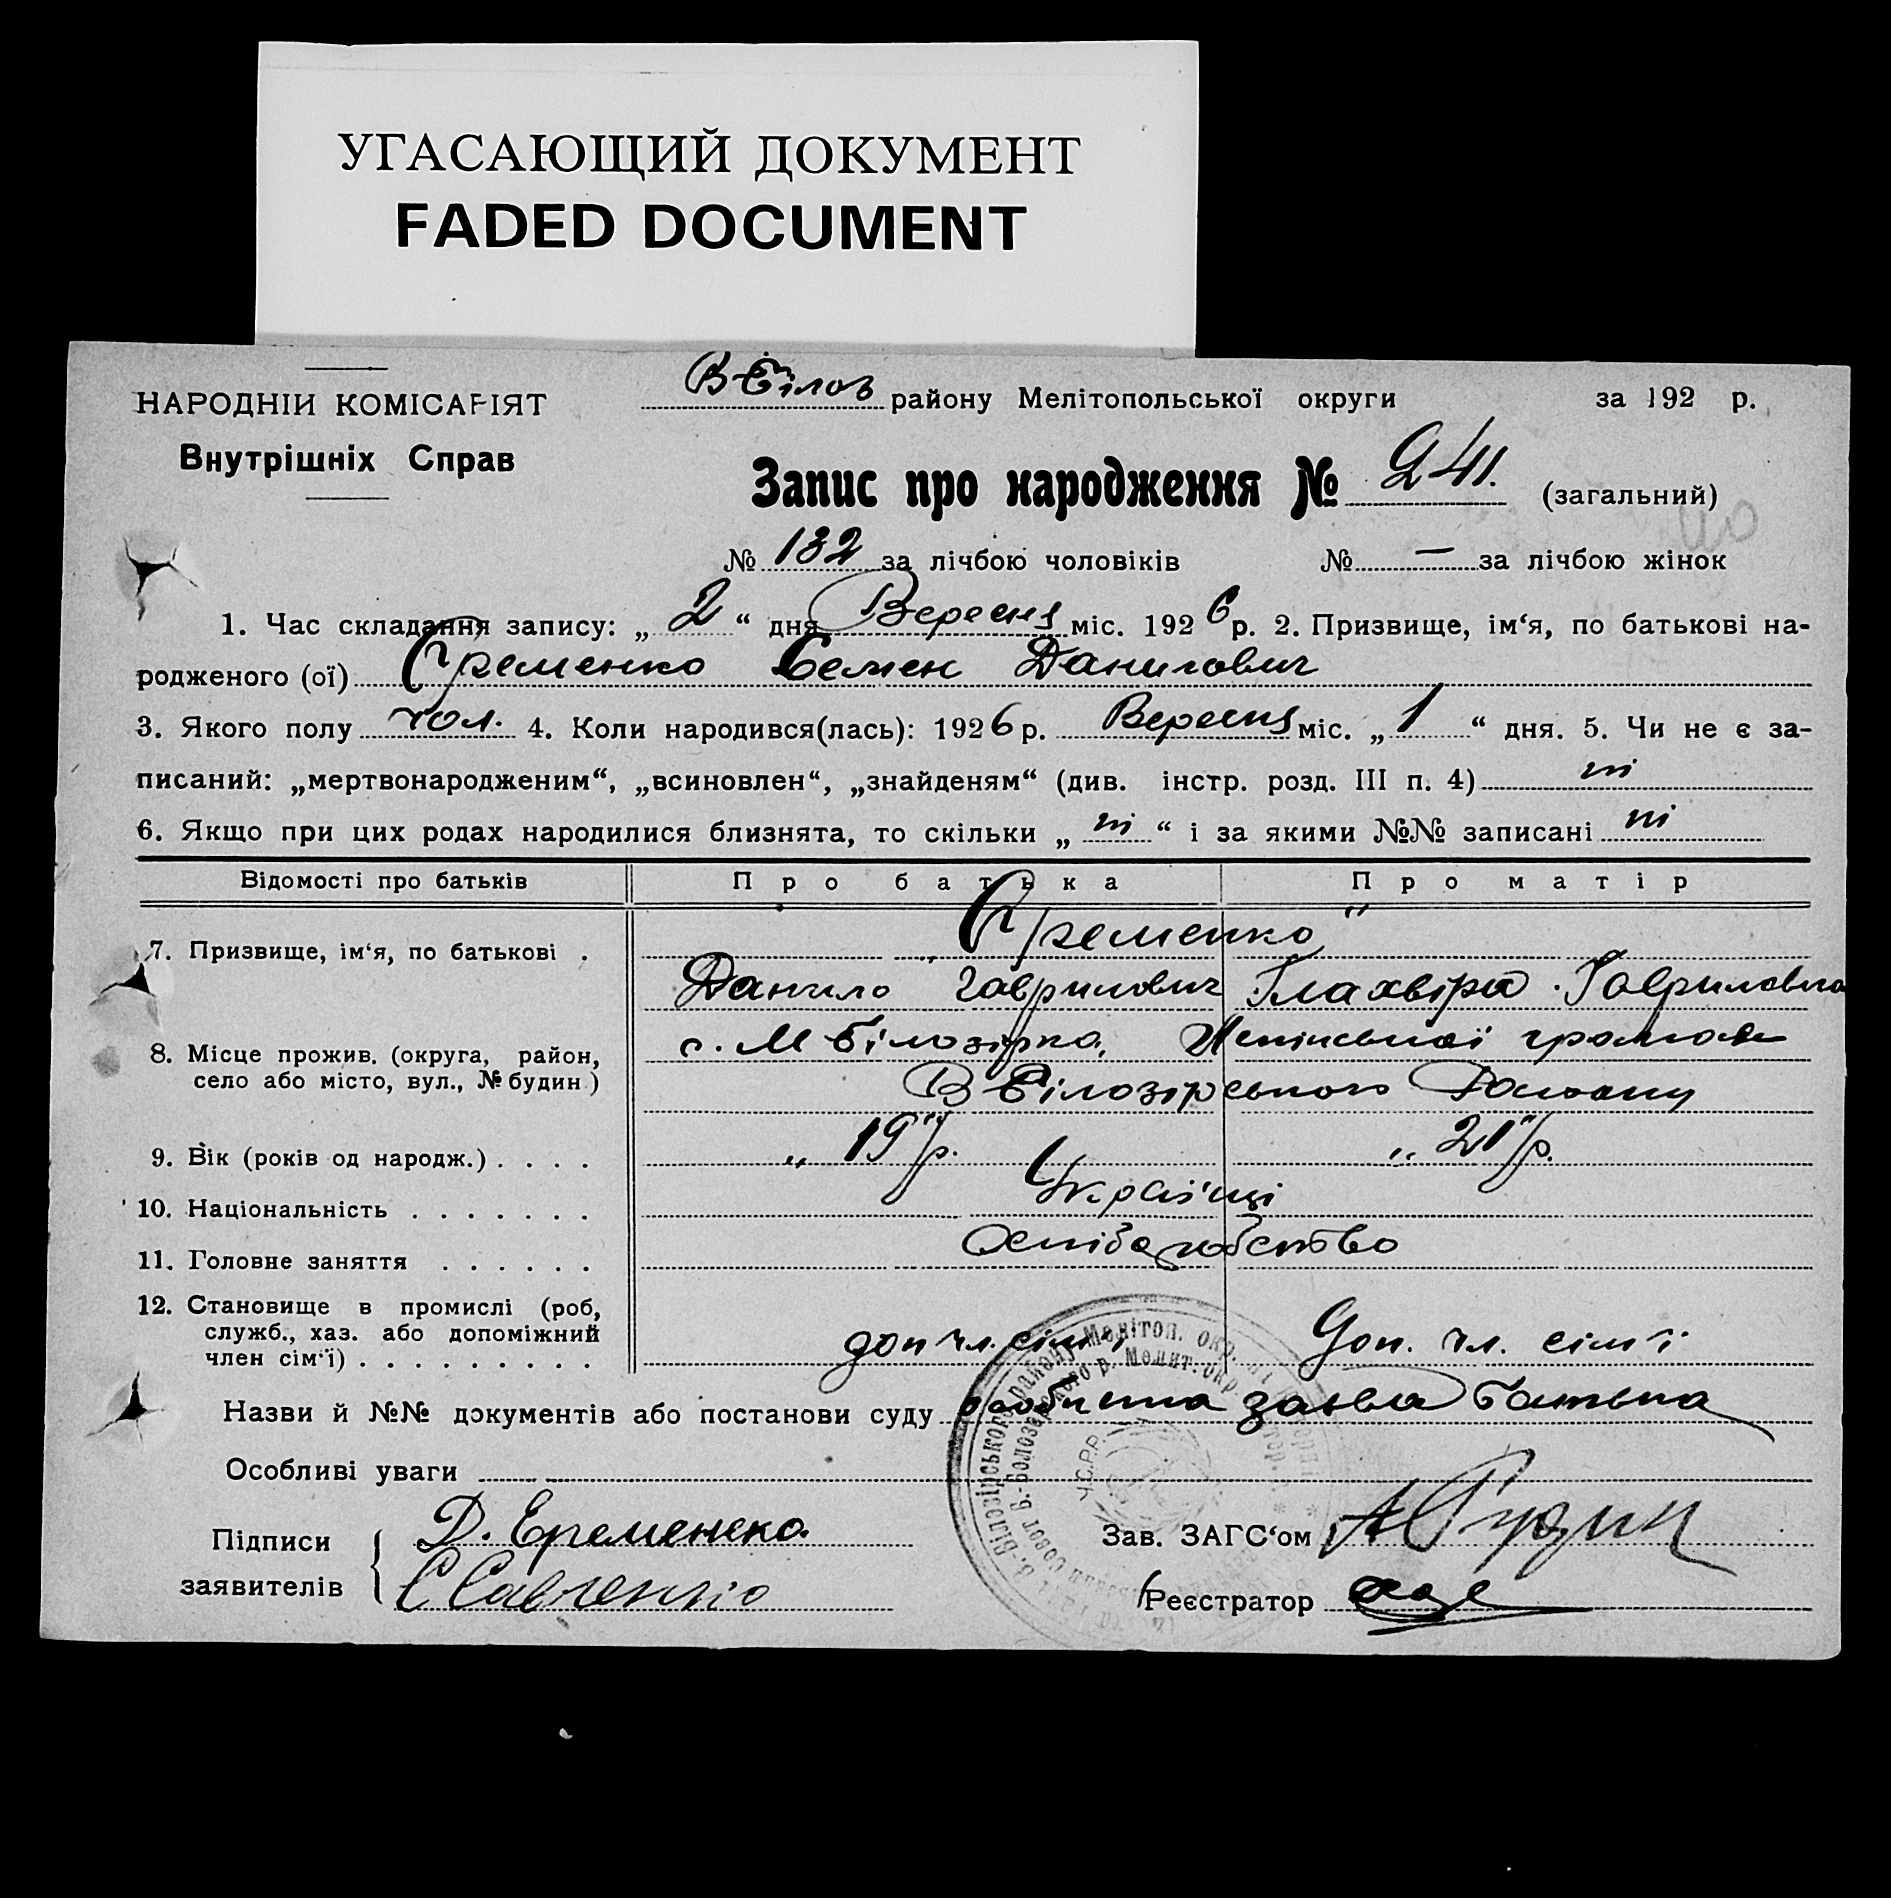 УГАСАЮЩИЙ ДОКУМЕНТ
FADED DOCUMENT
НАРОДНІИ КОМІСАРІЯТ
Внутрішніх Справ
В-Білоз району Мелітопольської округи за 192 р.
Запис про народження № 241. (загальний)
№ 132 за лічбою чоловіків № — за лічбою жінок
1. Час складання запису: „ 2 “ дня Вересня міс. 1926 р. 2. Призвище, ім‘я, по батькові на-
родженого (ої) Єременко Семен Данилович
3. Якого полу чол. 4. Коли народився(лась): 1926 р. Вересня міс. „ 1 “ дня. 5. Чи не є за-
писаний: „мертвонародженим“, „всиновлен“, „знайденям“ (див. інстр. розд. III п. 4) ні
6. Якщо при цих родах народилися близнята, то скільки „ ні “ і за якими №№ записані ні
Відомості про батьків Про батька Про матір
7. Призвище, ім‘я, по батькові . „Єременко“
Данило Гаврилович Глахвіра Гавриловна
8. Місце прожив. (округа, район, село або місто, вул., № будин.) с. М Білозірка,
В Білозірського Району
9. Вік (років од народж.) . . . . „19“ р. „21“ р.
10. Національність . . . . . . . Українці
11. Головне заняття . . . . . .
12. Становище в промислі (роб, служб., хаз. або допоміжний член сім‘ї) . . . . . . . . . . доп чл. сім'ї Доп. чл. сім'ї
Назви й №№ документів або постанови суду особиста заява Батька
Особливі уваги
Підписи заявителів
Д. Еременеко.
С Савченко
Зав. ЗАГС‘ом
Реєстратор
У.С.Р.Р.